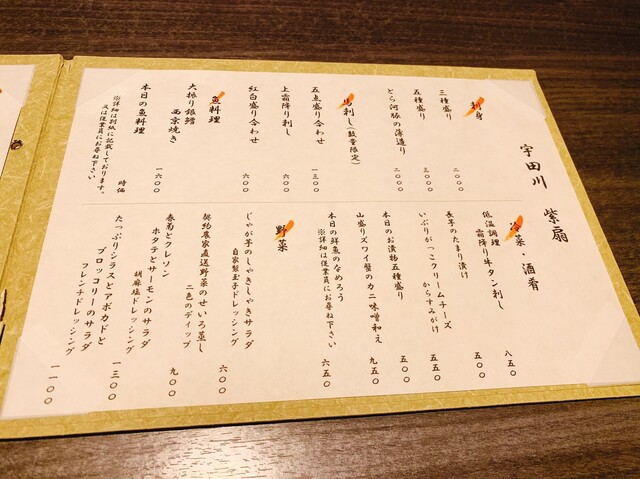 宇田川 紫扇
刺身
三種盛り 二〇〇〇
五種盛り 三〇〇〇
とら河豚の薄造り 二〇〇〇
馬刺し(数量限定)
五点盛り合わせ 一三〇〇
上霜降り刺し 六〇〇
紅白盛り合わせ 六〇〇
魚料理
大振り銀鱈
西京焼き 一六〇〇
本日の魚料理 時価
※詳細は別紙に記載しております。
又は従業員にお尋ね下さい
冷菜・酒肴
低温調理
霜降り牛タン刺し 八五〇
長芋のたまり漬け 五〇〇
いぶりがっこクリームチーズ
からすみがけ 五五〇
本日のお漬物五種盛り 五〇〇
山盛りズワイ蟹のカニ味噌和え 九五〇
本日の鮮魚のなめろう 六五〇
※詳細は従業員にお尋ね下さい
野菜
じゃが芋のしゃきしゃきサラダ
自家製玉子ドレッシング 六〇〇
契約農家直送野菜のせいろ蒸し
二色のディップ 九〇〇
春菊とクレソン
ホタテとサーモンのサラダ
胡麻塩ドレッシング 一三〇〇
たっぷりシラスとアボカドと
ブロッコリーのサラダ
フレンチドレッシング 一一〇〇